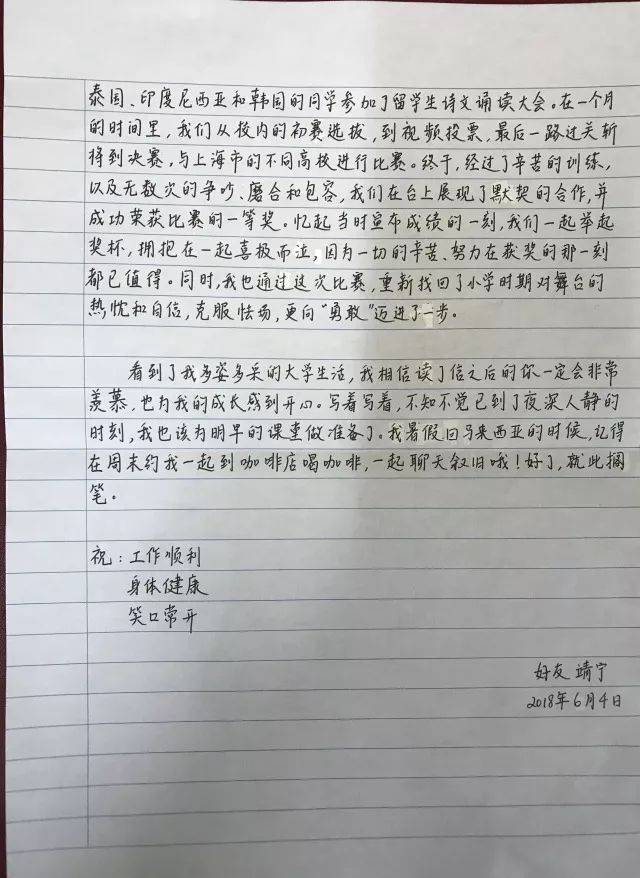 泰国、印度尼西亚和韩国的同学参加了留学生诗文诵读大会。在一个月
的时间里，我们从校内的初赛选拔，到视频投票，最后一路过关斩
将到决赛，与上海市的不同高校进行比赛。终于，经过了辛苦的训练，
以及无数次的争吵、磨合和包容，我们在台上展现了默契的合作，并
成功荣获比赛的一等奖。忆起当时宣布成绩的一刻，我们一起举起
奖杯，拥抱在一起喜极而泣，因为一切的辛苦、努力在获奖的那一刻
都已值得。同时，我也通过这次比赛，重新找回了小学时期对舞台的
热忱和自信，克服怯场，更向“勇敢”迈进了一步。
看到了我多姿多采的大学生活，我相信读了信之后的你一定会非常
羡慕，也为我的成长感到开心。写着写着，不知不觉已到了夜深人静的
时刻，我也该为明早的课堂做准备了。我暑假回马来西亚的时候，记得
在周末约我一起到咖啡店喝咖啡，一起聊天叙旧哦！好了，就此搁
笔。
祝：工作顺利
身体健康
笑口常开
好友 靖宁
2018年6月4日